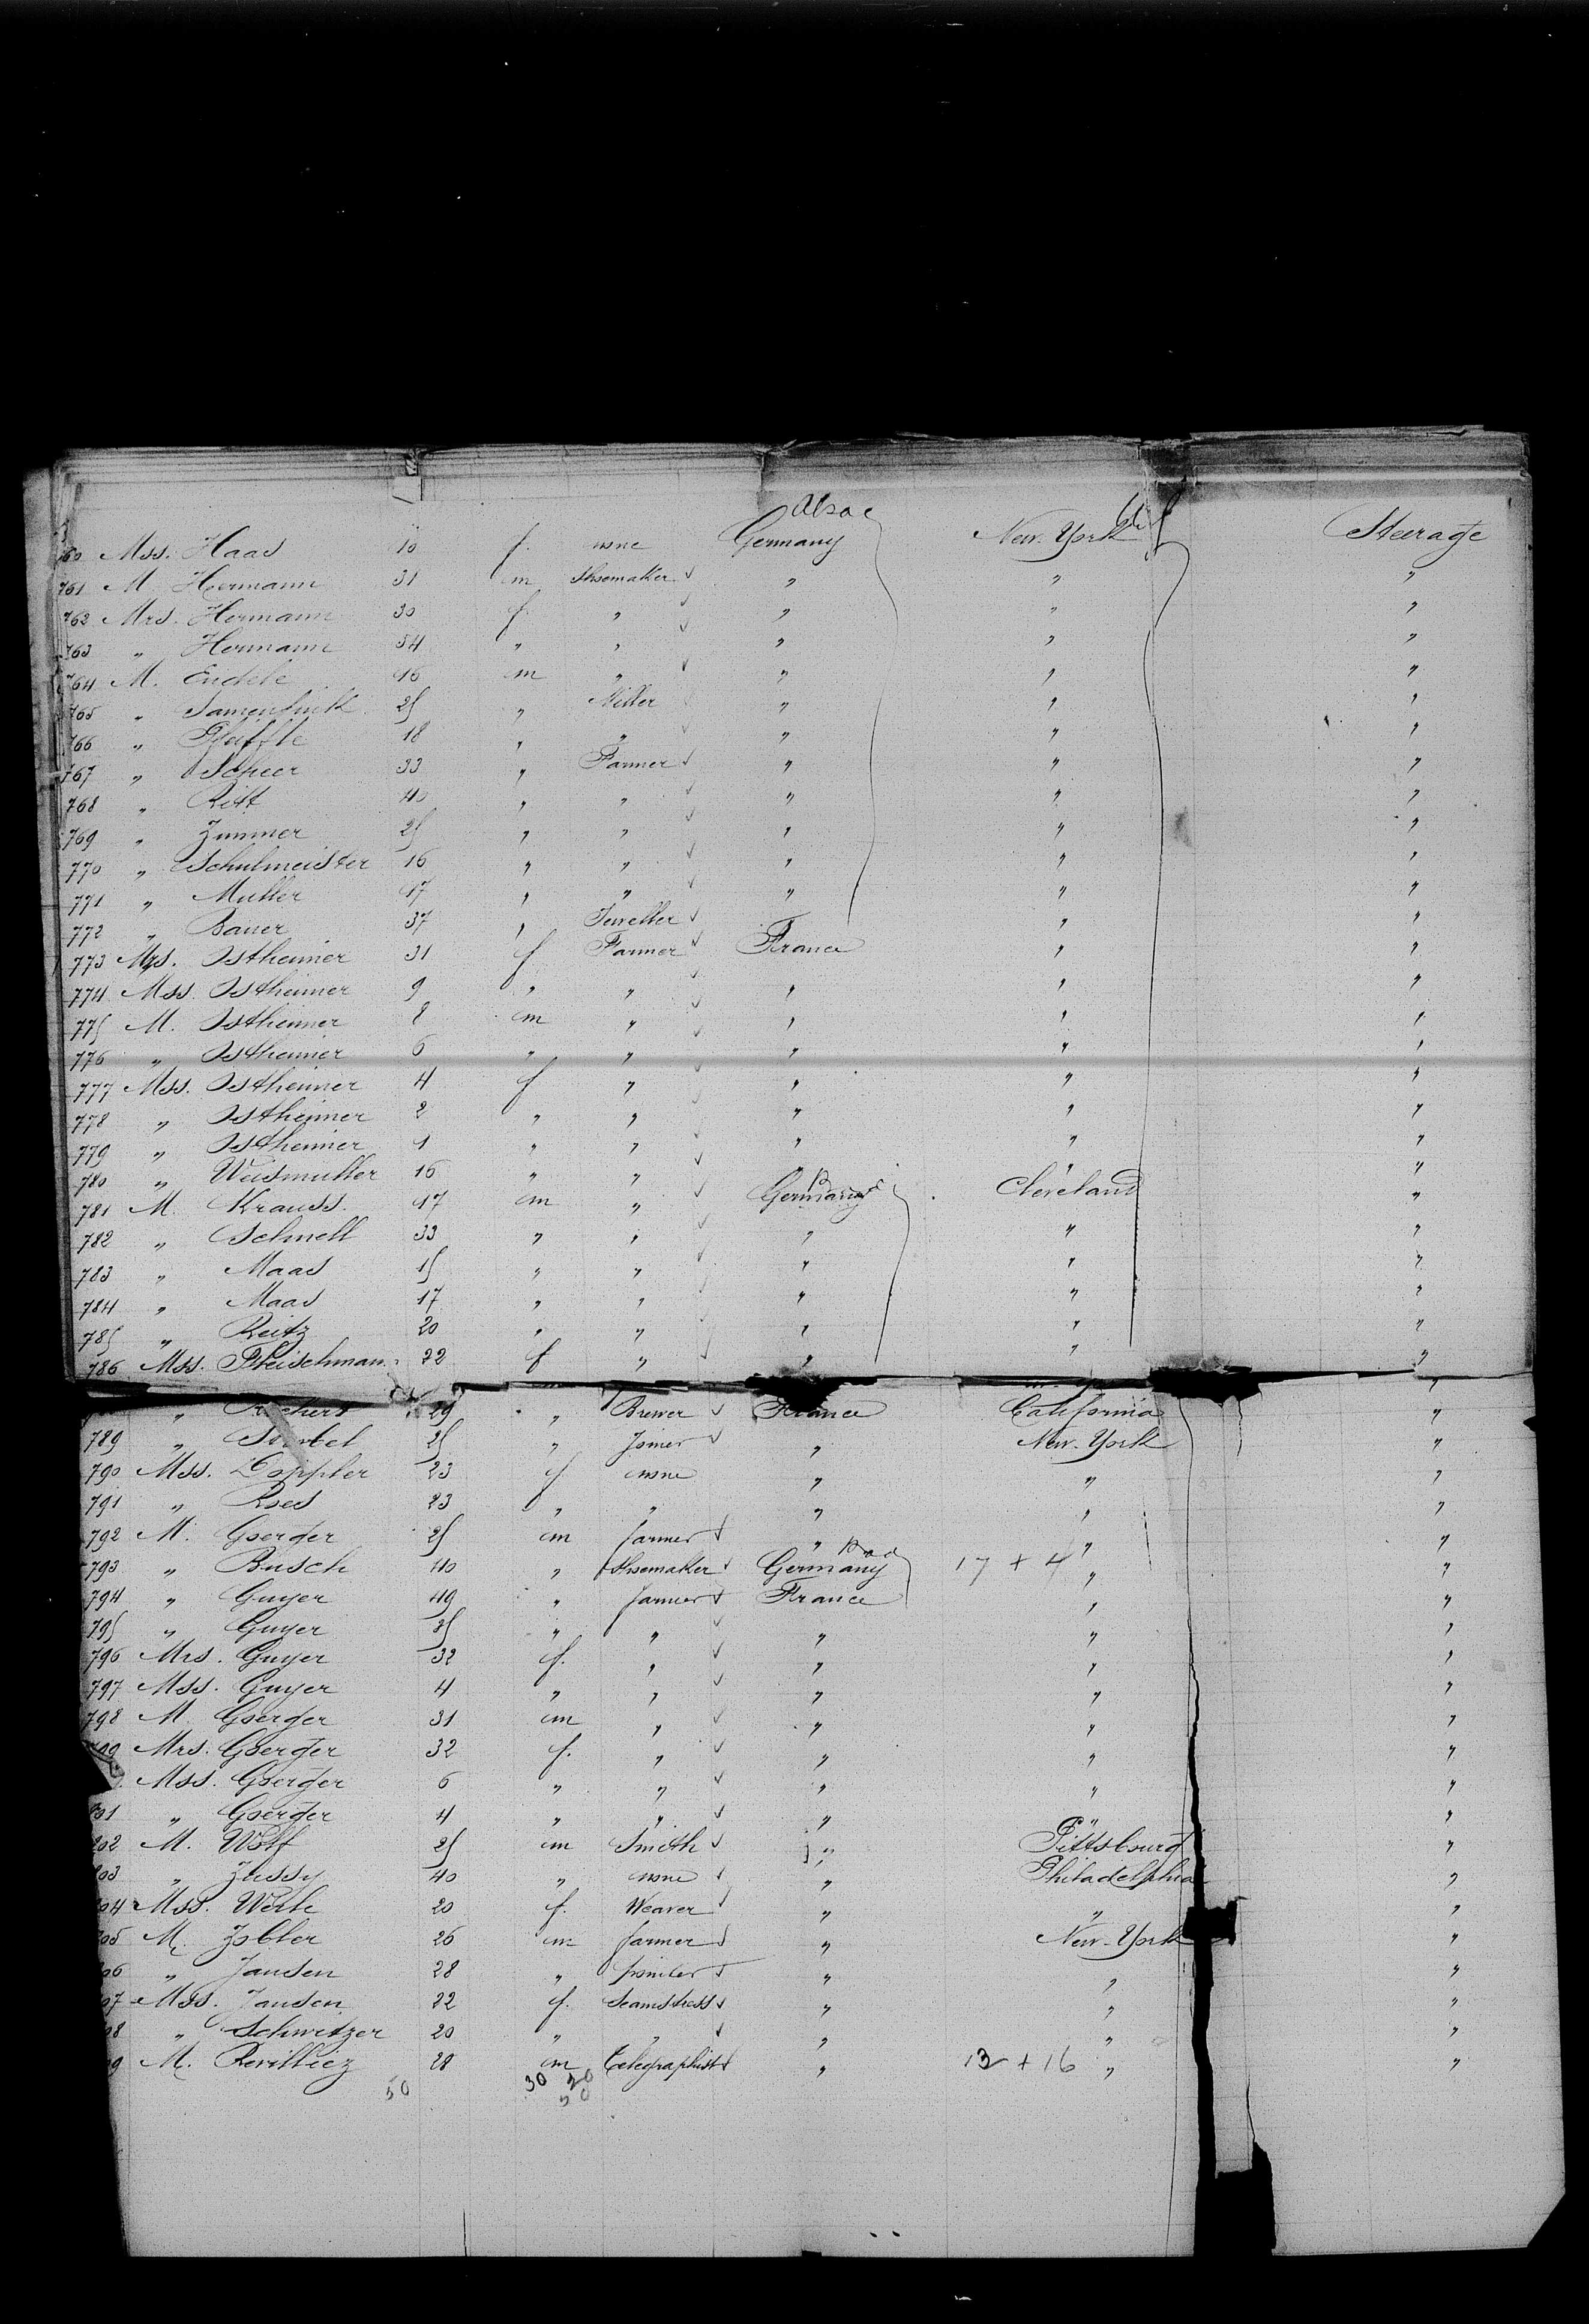 Alsac
60 Mss. Haas 10 f. none Germany New-York Steerage
761 M Hermann 31 m Shoemaker " " "
762 Mrs. Hermann 30 f. " " " "
763 " Hermann 54 " " " " "
764 M. Endele 16 m " " " "
765 " 25 " Miller " " "
766 " Pfeiffle 18 " " " " "
767 " Scheer 33 " Farmer " " "
768 " Ritt 40 " " " " "
769 " Zimmer 25 " " " " "
770 " Schulmeister 16 " " " " "
771 " Muller 17 " " " " "
772 " Bauer 37 " Jeweller " "
773 Mrs. Ostheimer 31 f Farmer France " "
774 Mss Ostheimer 9 " " " " "
775 M. Ostheimer 8 m " " " "
776 " Ostheimer 6 " " " " "
777 Mss. Ostheimer 4 f " " " "
778 " Ostheimer 2 " " " " "
779 " Ostheimer 1 " " " " "
780 " Weismuller 16 " " " " "
781 M. Krauss. 17 m " Germany Cleveland "
782 " Schnell 33 " " " " "
783 " Maas 15 " " " " "
784 " Maas 17 " " " " "
785 " Reitz 20 " " " " "
786 Mss. Fleischman 22 f " " " "
" 29 " Brewer France California "
789 " 25 " Joiner " New-York "
790 Mss. Doppler 23 f none " " "
791 " Roed 23 " " " " "
792 M. Goerger 25 m farmer " " "
793 " Busch 40 " Shoemaker Germany 17 + 4 " "
794 " Guyer 49 " farmer France " "
795 " Guyer 35 " " " " "
796 Mrs. Guyer 32 f. " " " "
797 Mss. Guyer 4 " " " " "
798 M. Goerger 31 m " " " "
799 Mrs. Goerger 32 f. " " " "
Mss. Goerger 6 " " " " "
801 " Goerger 4 " " " " "
802 M. Wolf 25 m Smith " Pittsbourg "
803 " Zussy 40 " none " Philadelphia "
04 Mss. Werle 20 f. Weaver " " "
05 M. Zobler 26 m farmer " New-York "
06 " Jansen 28 " " " "
07 Mss. Jansen 22 f. Seamstress " " "
08 " Schwitzer 20 " " " " "
9 M. Revilliez 28 m telegraphist " 13 + 16 " "
50 30 20
50